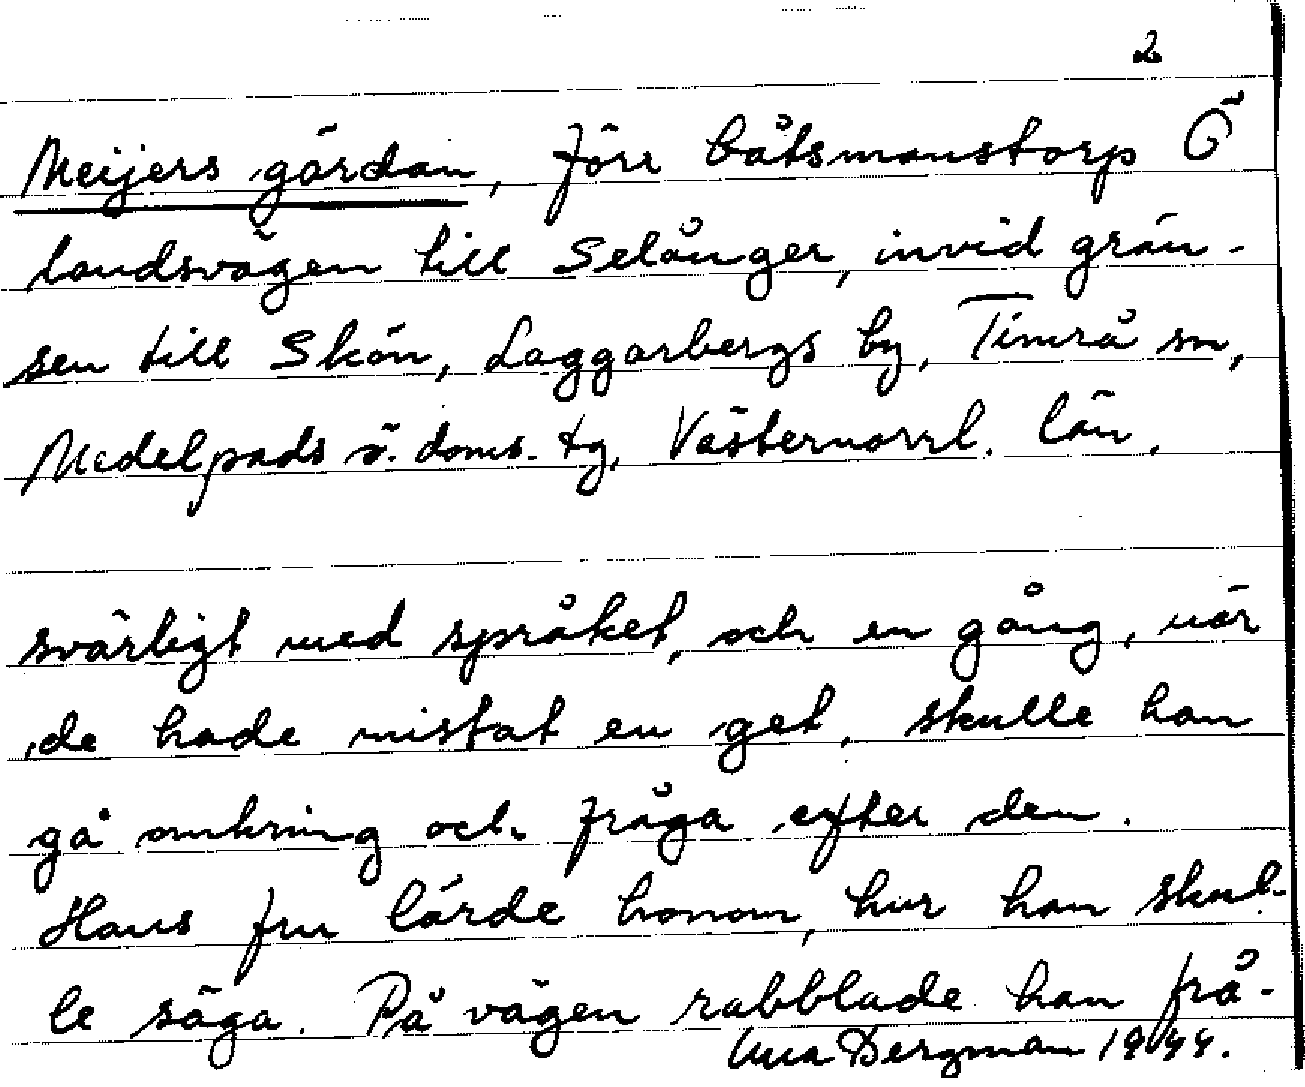 2
Meijers gärdan, förr båtsmanstorp Ö
landsvägen till Selånger, invid grän-
sen till Skön, Laggarbergs by, Timrå sn,
Medelpads ö. doms. tg, Västernorrl. län.
svårligt med språket, och en gång, när
de hade mistat en get, skulle han
gå omkring och fråga efter den.
Hans fru lärde honom, hur han skul-
le säga. På vägen rabblade han frå-
Bergman 1944.